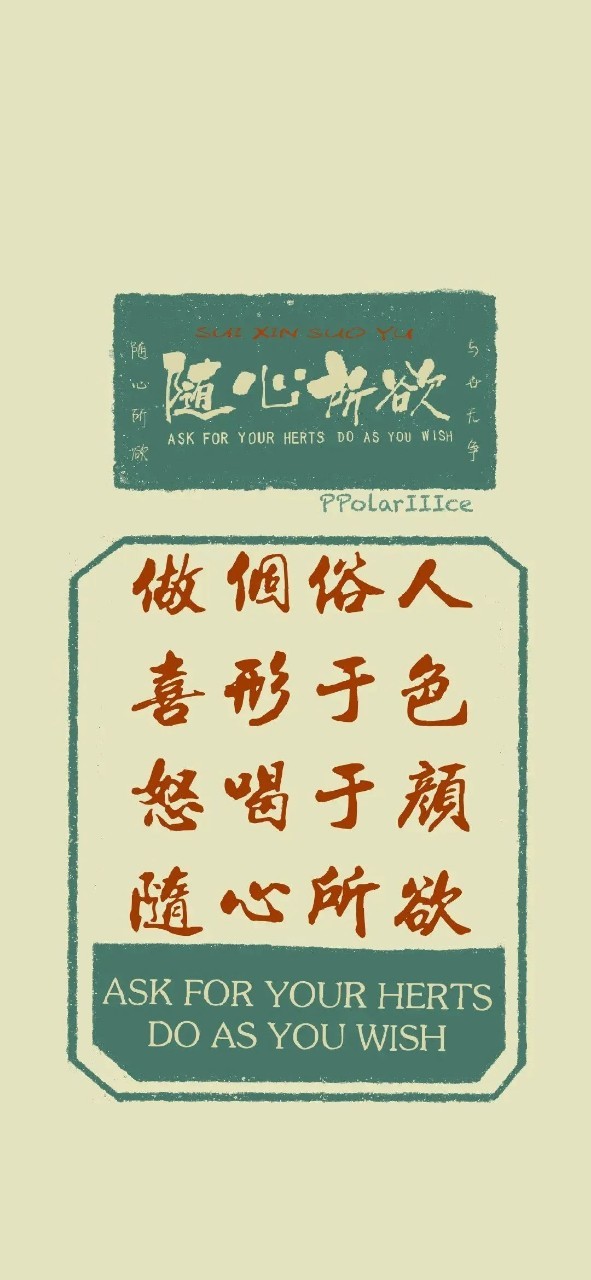 SUI XIN SUO YU
随心所欲
随心所欲
与世无争
ASK FOR YOUR HERTS DO AS YOU WISH
PPolarIIIce
做個俗人
喜形于色
怒喝于顔
隨心所欲
ASK FOR YOUR HERTS
DO AS YOU WISH